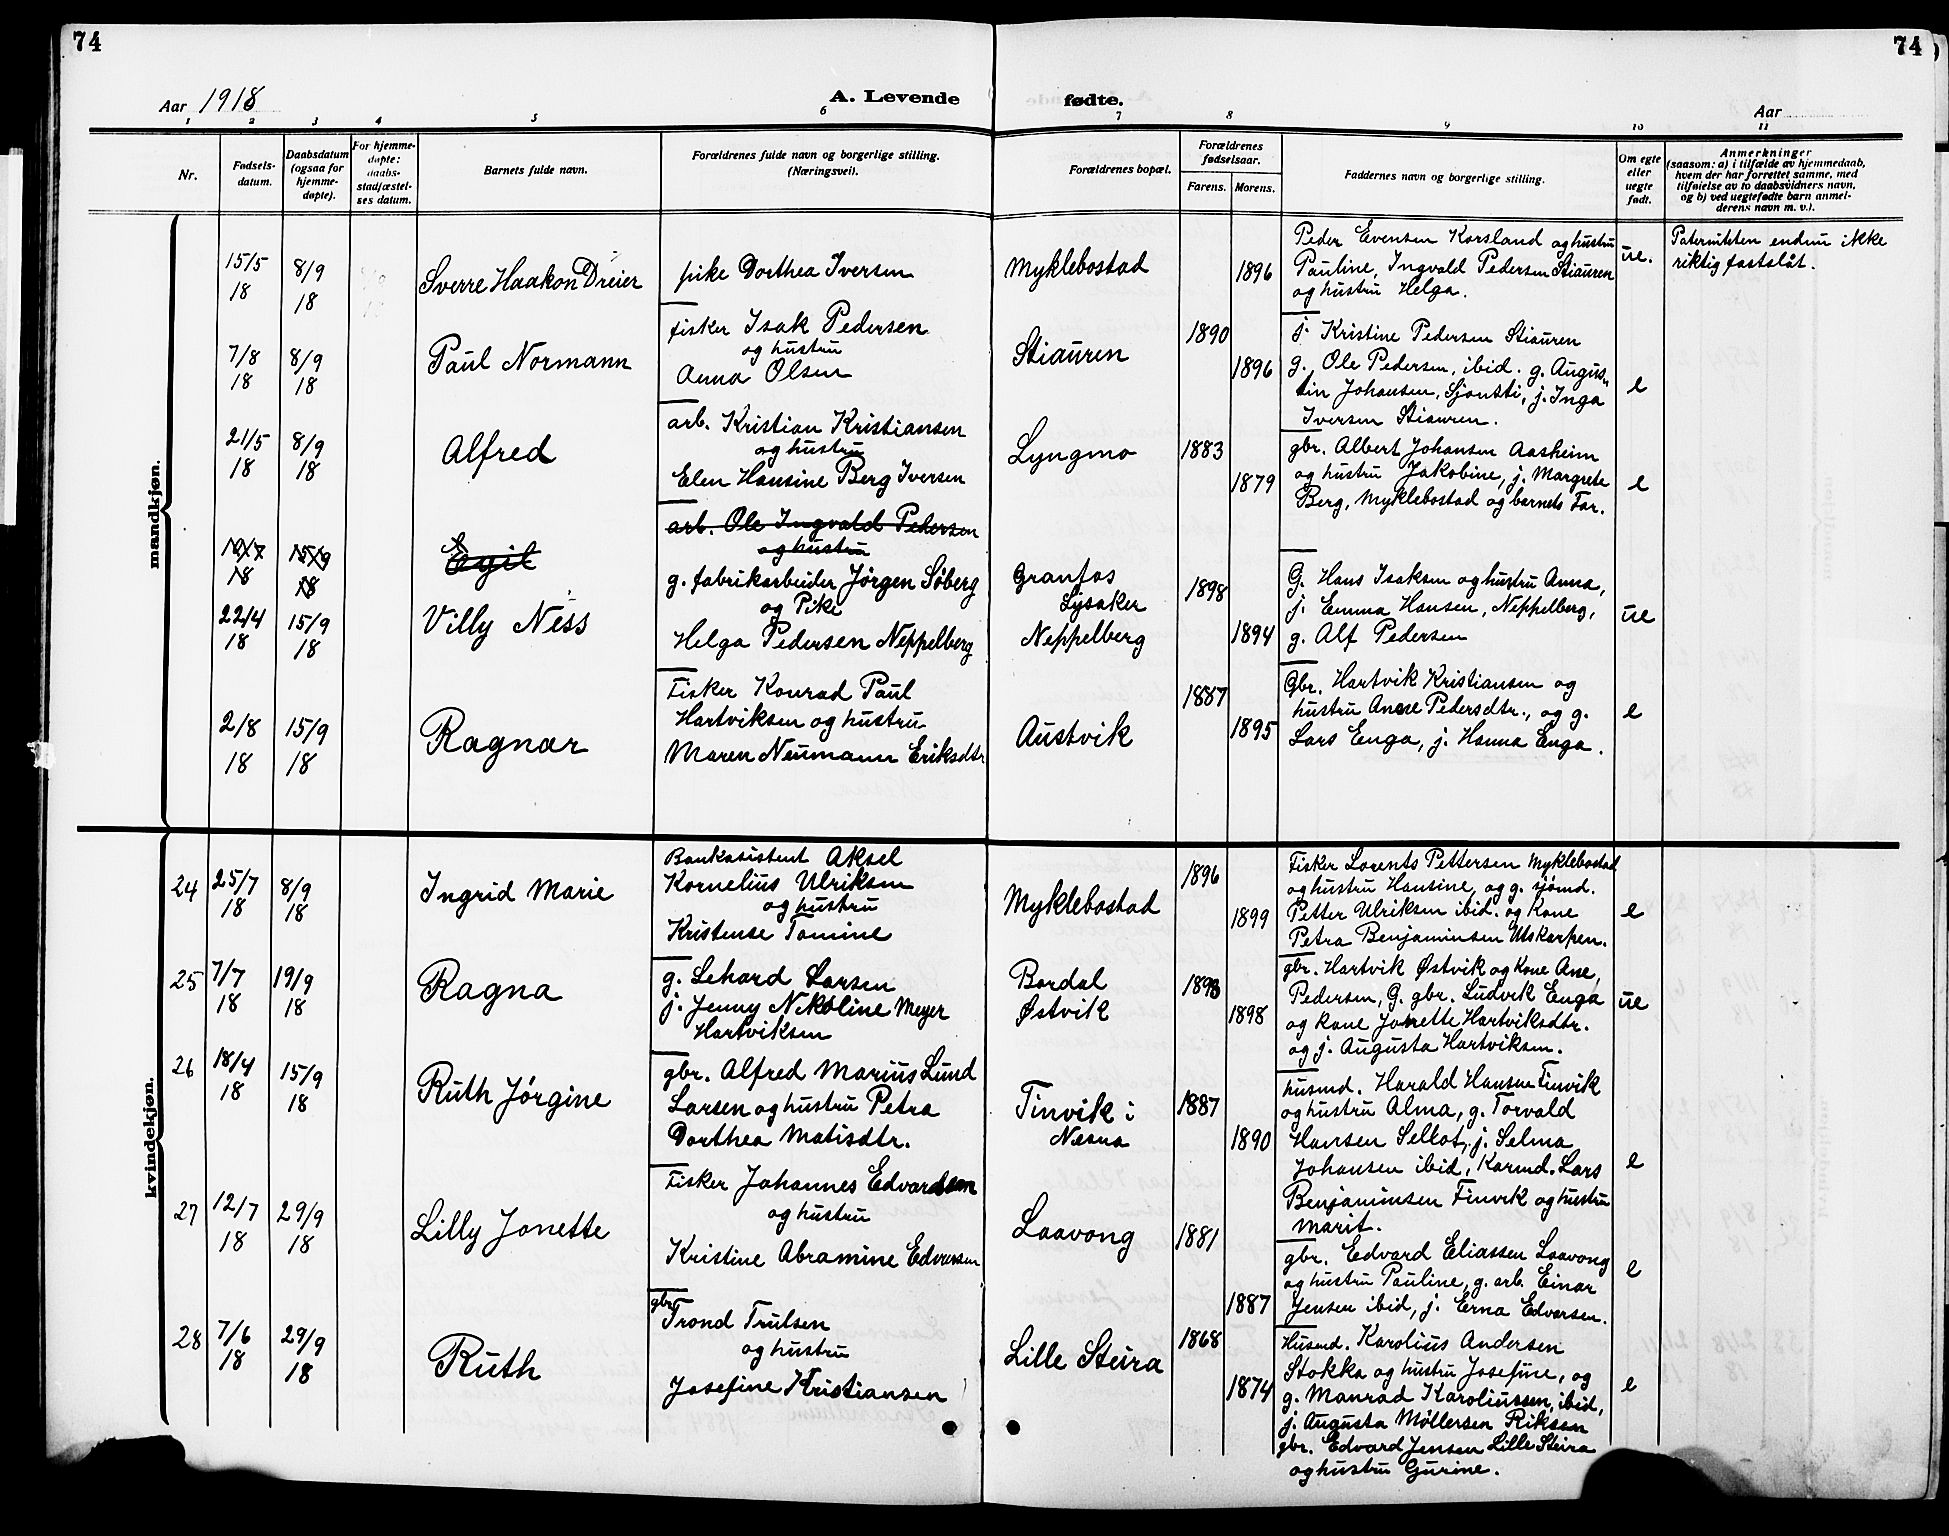 74
74
Aar 1918
A. Levende
fødte.
Aar
1 2 3 4 5 6 7 8 9 10 11
Nr.
Fødsels-
datum.
Daabsdatum
(ogsaa for
hjemme-
døpte).
For hjemme-
døpte:
daabs-
stadfæstel-
ses datum.
Barnets fulde navn.
Forældrenes fulde navn og borgerlige stilling.
(Næringsvei).
Forældrenes bopæl.
Forældrenes
fødselsaar.
Farens. Morens.
Faddernes navn og borgerlige stilling.
Om egte
eller
uegte
født.
Anmerkninger
(saasom: a) i tilfælde av hjemmedaab,
hvem der har forrettet samme, med
tilføielse av to daabsvidners navn,
og b) ved uegtefødte barn anmel-
derens navn m. v.).
mandkjøn.
15/5
18
8/9
18
Sverre Haakon Dreier
pike Dorthea Iversen
Myklebostad
1896
Peder Evensen Korsland og hustru
Pauline, Ingvald Pedersen Stiauren
og hustru Helga.
ue.
Paterniteten endnu ikke
riktig fastslåt.
7/8
18
8/9
18
Paul Normann
fisker Isak Pedersen
og hustru
Anna Olsen
Stiauren
1890
1896
j. Kristine Pedersen Stiauren
g. Ole Pedersen, ibid. g. Augus-
tin Johansen, Sjonsti, j. Inga
Iversen Stiauren.
e
21/5
18
8/9
18
Alfred
arb. Kristian Kristiansen
og hustru
Elen Hansine Berg Iversen
Lyngmo
1883
1879
gbr. Albert Johansen Aasheim
og hustru Jakobine, j. Margrete
Berg, Myklebostad og barnets Far.
e
18
15/9
18
Egil
arb. Ole Ingvald Pedersen
og hustru
22/4
18
15/9
18
Villy Ness
g. fabrikarbeider Jørgen Søberg
og Pike
Helga Pedersen Neppelberg
Granfos
Lysaker
Neppelberg
1898
1894
G. Hans Isaksen og hustru Anna,
j. Emma Hansen, Neppelberg,
g. Alf Pedersen
ue
2/8
18
15/9
18
Ragnar
Fisker Konrad Paul
Hartviksen og hustru
Maren Neumann Eriksdtr
Austvik
1887
1895
Gbr. Hartvik Kristiansen og
hustru Anne Pedersdtr., og g.
Lars Enga, j. Hanna Enga.
e
kvindekjøn.
24
25/7
18
8/9
18
Ingrid Marie
Bankasistent Aksel
Kornelius Ulriksen
og hustru
Kristense Tomine
Myklebostad
1896
1899
Fisker Lorents Pettersen Myklebostad
og hustru Hansine, og g. sjømd.
Petter Ulriksen ibid. og Kone
Petra Benjaminsen Utskarpen.
e
25
7/7
18
19/9
18
Ragna
g. Lehard Larsen
j. Jenny Nikoline Meyer
Hartviksen
Bardal
Østvik
1898
1898
gbr. Hartvik Østvik og Kone Ane,
Pedersen, G. gbr. Ludvik Enga
og kone Jonette Hartviksdtr.
og j. Augusta Hartviksen.
ue
26
18/4
18
15/9
18
Ruth Jørgine
gbr. Alfred Marius Lund
Larsen og hustru Petra
Dorthea Matisdtr.
Finvik i
Nesna
1887
1890
husmd. Harald Hansen Finvik
og hustru Alma, g. Torvald
Hansen Selkot, j. Selma
Johansen ibid, Karmd. Lars
Benjaminsen Finvik og hustru
Marit.
e
27
12/7
18
29/9
18
Lilly Jonette
Fisker Johannes Edvardsen
og hustru
Kristine Abramine Edvarsen
Laavong
1881
1887
gbr. Edvard Eliassen Laavong
og hustru Pauline, g. arb. Einar
Jensen ibid, j. Erna Edvarsen.
e
28
7/6
18
29/9
18
Ruth
gbr
Trond Trulsen
og hustru
Josefine Kristiansen
Lille Steira
1868
1874
Husmd. Karolius Andersen
Stokka og hustru Josefine, og
g. Manrad Karoliussen, ibid,
j. Augusta Møllersen Riksen
gbr. Edvard Jensen Lille Steira
og hustru Gurine.
e